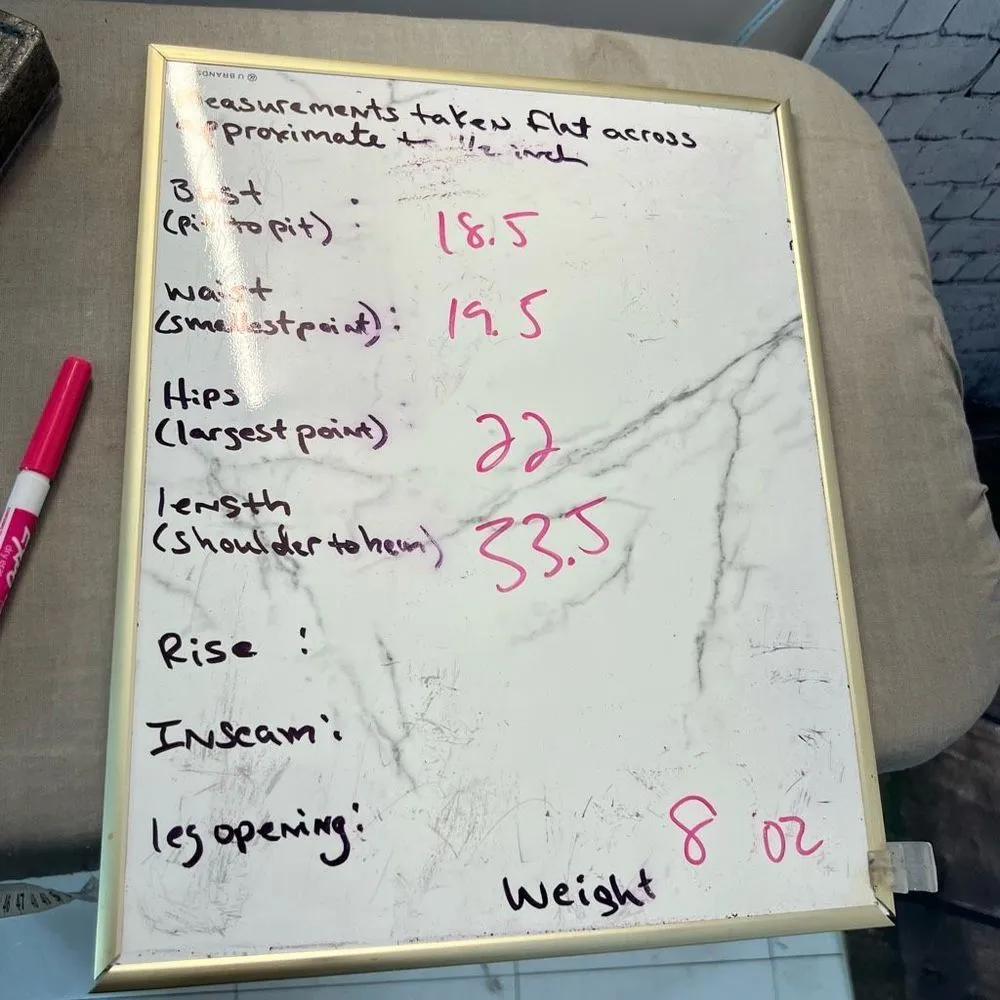 U BRANDS
easurements taken flat across
pproximate to 1/2 inch
Bust :
(pit to pit) : 18.5
waist
(smallest point): 19.5
Hips
(largest point) 22
length
(shoulder to hem) 33.5
Rise :
Inseam:
leg opening:
8 oz
Weight